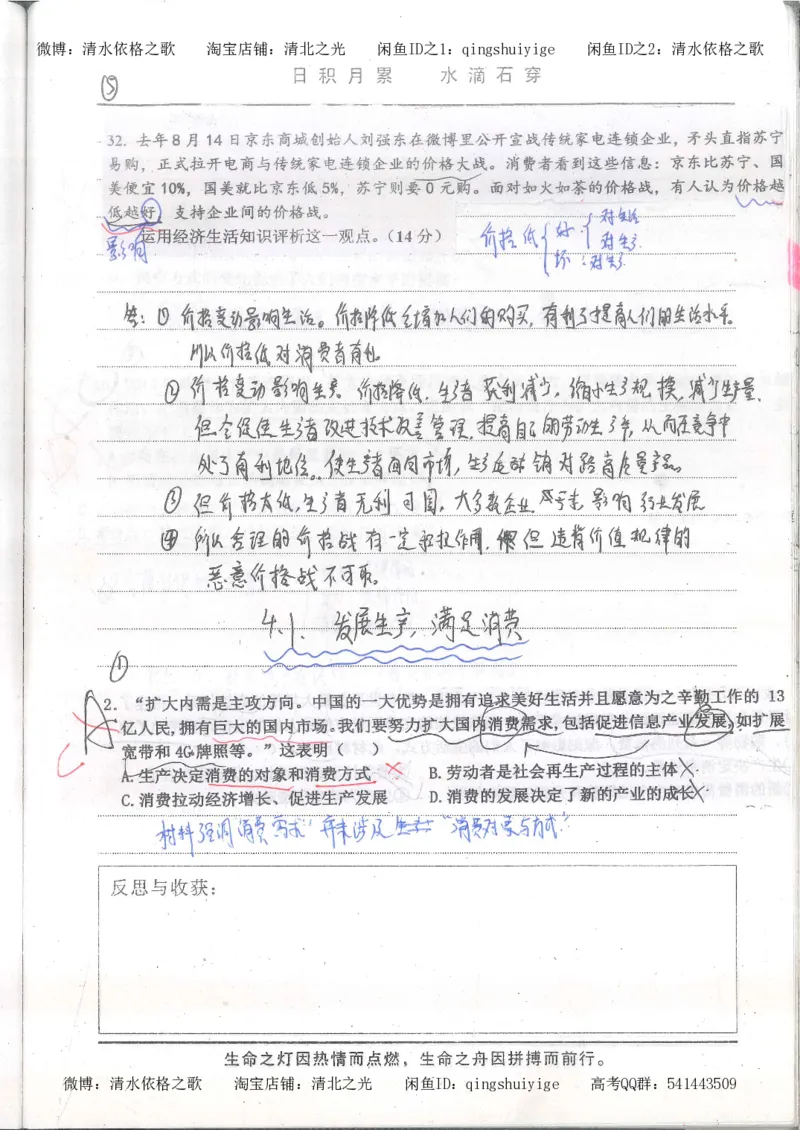 微博：清水依格之歌 淘宝店铺：清北之光 闲鱼ID之1：qingshuiyige 闲鱼ID之2：清水依格之歌
日积月累 水滴石穿
⑤
32. 去年8月14日京东商城创始人刘强东在微博里公开宣战传统家电连锁企业，矛头直指苏宁
易购，正式拉开电商与传统家电连锁企业的价格大战。消费者看到这些信息：京东比苏宁、国
美便宜10%，国美就比京东低5%，苏宁则要0元购。面对如火如荼的价格战，有人认为价格越
低越好，支持企业间的价格战。
运用经济生活知识评析这一观点。（14分）
影响
价格低 好：对生活
对生产
坏：对生产
答：①价格变动影响生活。价格降低会增加人们的购买，有利于提高人们的生活水平。
所以价格低对消费者有利
②价格变动影响生产。价格降低，生产者获利减少，缩小生产规模，减少生产量，
但会促使生产者改进技术改善管理，提高自己的劳动生产率，从而在竞争中
处于有利地位。使生产者面向市场，生产适销对路高质量产品。
③但价格太低，生产者无利可图，大多数企业 影响行业发展
④所以合理的价格战有一定积极作用，但违背价值规律的
恶意价格战不可取。
4.1. 发展生产，满足消费
①
2. “扩大内需是主攻方向。中国的一大优势是拥有追求美好生活并且愿意为之辛勤工作的 13
亿人民，拥有巨大的国内市场。我们要努力扩大国内消费需求，包括促进信息产业发展，如扩展
宽带和4G牌照等。”这表明（ ）
A.生产决定消费的对象和消费方式 B.劳动者是社会再生产过程的主体
C.消费拉动经济增长、促进生产发展 D.消费的发展决定了新的产业的成长
材料强调“消费需求”并未涉及 “消费对象与方式”
反思与收获：
生命之灯因热情而点燃，生命之舟因拼搏而前行。
微博：清水依格之歌 淘宝店铺：清北之光 闲鱼ID：qingshuiyige 高考QQ群：541443509